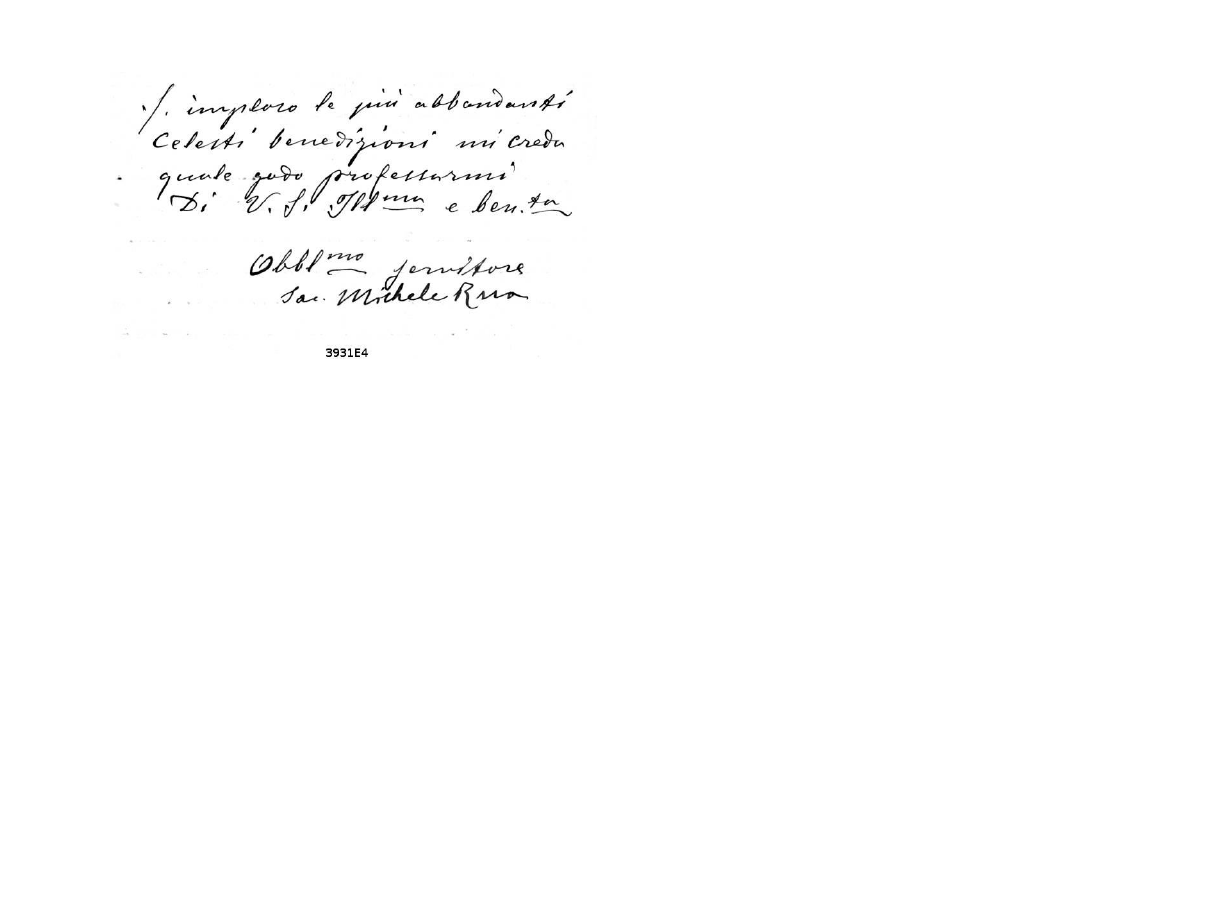 ./. imploro le più abbondanti
Celesti benedizioni mi creda
quale godo professarmi
Di V. S. Ill.ma e ben.ta
Obbl.mo servitore
Sac. Michele Rua
3931E4